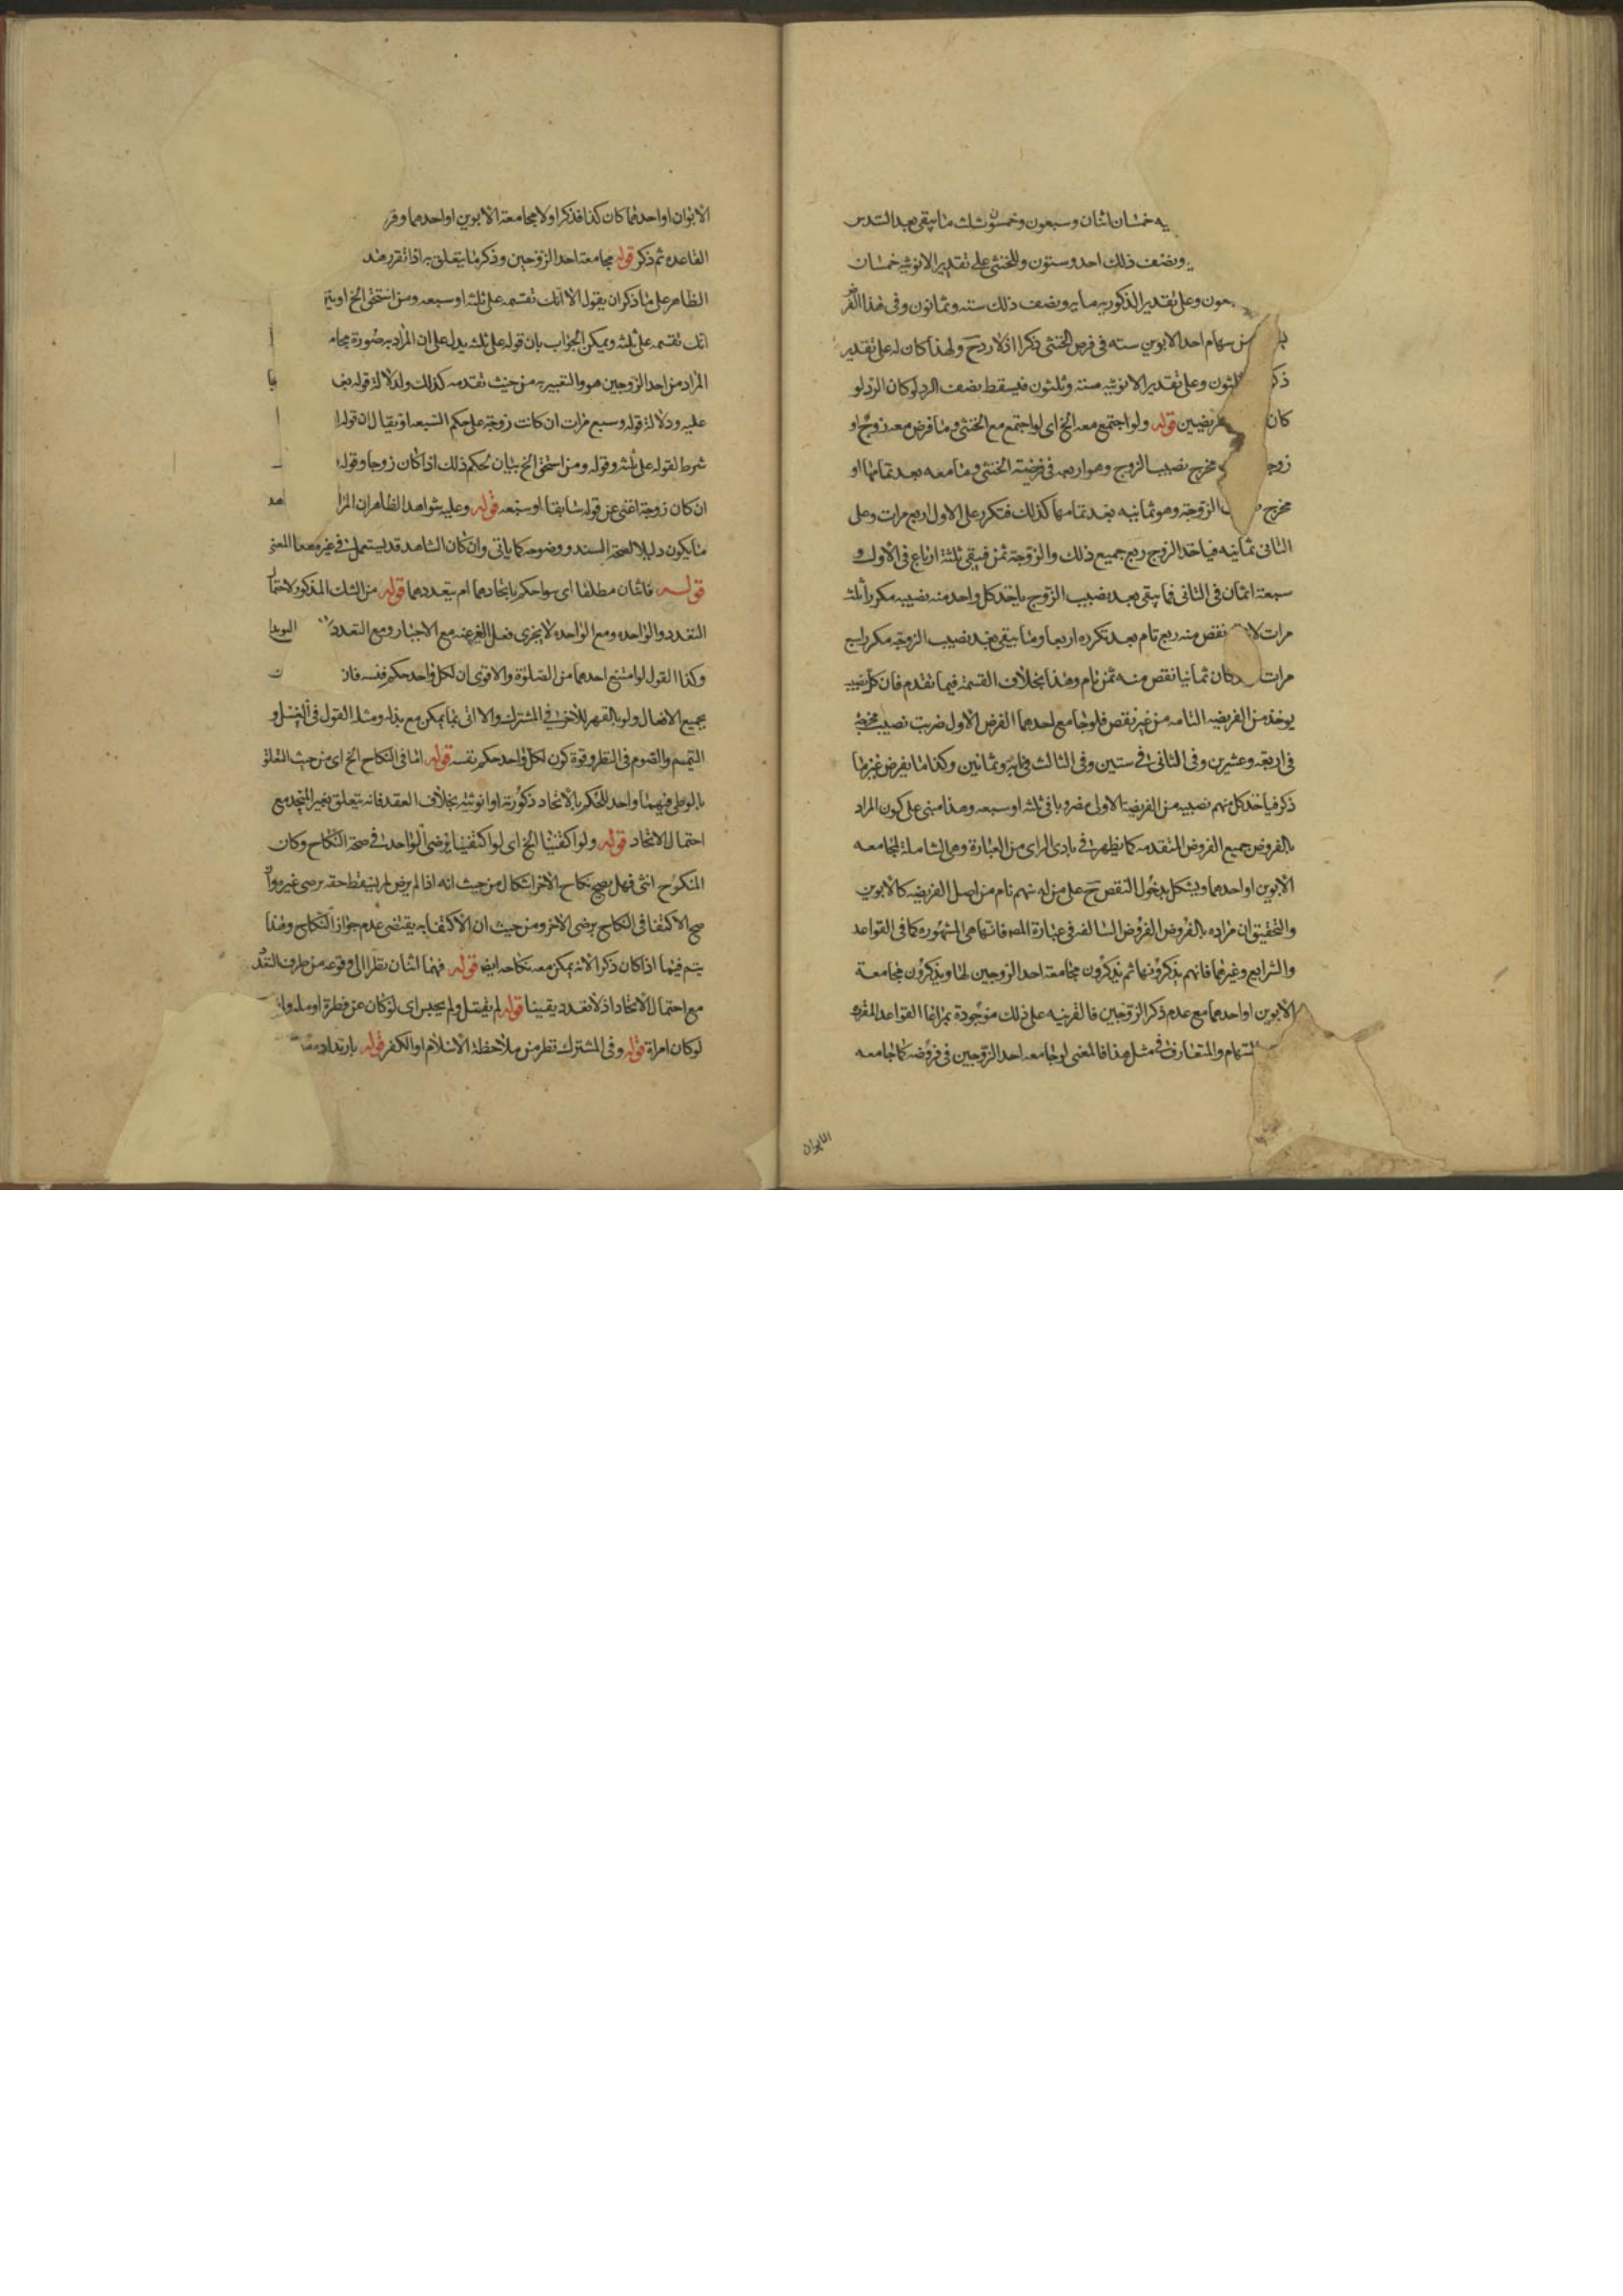 يه خمسان اثنان وسبعون وخمسون ثلث ما يبقى بعد السدس
ونصف ذلك احد وستون وللخنثى على تقدير الانوثيه خمسان
وعلى تقدير الذكوريه مايه ونصف ذلك سته وثمانون وفى هذا الفرض
من سهام احد الابوين سته فى فرض الخنثى ذكرا اذ لا رد ح ولهذا كان له على تقدير
ثلثون وعلى تقدير الانوثيه سته وثلثون فيسقط نصف الرد لو كان الرد لو
كان قوله ولو اجتمع معه الخ اى لو اجتمع مع الخنثى وما فرض معه زوج او
مخرج نصيب الزوج وهو اربعه فى فريضة الخنثى وما معه بعد تمامها او
مخرج الزوجة وهو ثمانيه بعد تمامها كذلك فتكرر على الاول اربع مرات وعلى
الثانى ثمانيه فياخذ الزوج ربع جميع ذلك والزوجة ثمن فيبقى ثلثة ارباع فى الاول و
سبعة اثمان فى الثانى فما يبقى بعد نصيب الزوج ياخذ كل واحد منه نصيبه مكررا ثلث
مرات نقص منه ربع تام بعد تكرره اربعا وما يبقى بعد نصيب الزوجه مكرر سبع
مرات كان ثمانيا نقص منه ثمن تام وهذا بخلاف القسمة فيما تقدم فان كل نصيب
يوخذ من الفريضه التامه من غير نقص فلو جامع احدهما الفرض الاول ضربت نصيب مخرجه
فى اربعه وعشرين وفى الثانى فى ستين وفى الثالث فى مايه وثمانين وكذا ما يفرض غير ما
ذكر فياخذ كل منهم نصيبه من الفريضة الاولى مضروبا فى ثلثه او سبعه وهذا مبنى على كون المراد
بالفروض جميع الفروض المتقدمه كما يظهر فى بادى الراى من العبارة وهى الشاملة لمجامعه
الابوين او احدهما ويشكل بدخول النقص ح على من له سهم تام من اصل الفريضه كالابوين
والتحقيق ان مراده بالفروض الفروض السالفه فى عبارة المص فانها هى المشهوره كما فى القواعد
والشرايع وغيرهما فانهم يذكرونها ثم يذكرون مجامعة احد الزوجين لها ويذكرون مجامعة
الابوين او احدهما مع عدم ذكر الزوجين فالقرينه على ذلك موجودة بمراعاة القواعد المقرره
السهام والمتعارف فى مثل هذا فالمعنى لو جامعه احد الزوجين فى فروضه كما جامعه
الابوان
الابوان او احدهما كان كذا فذكر اولا مجامعة الابوين او احدهما وقرر
القاعده ثم ذكر قوله مجامعة احد الزوجين وذكر ما يتعلق به اذا تقرر هذا
الظاهر على ما ذكر ان يقول الا انك تقسمه على ثلثه او سبعه ومن استحق الخ او يتم
انك تقسمه على ثلثه ويمكن الجواب بان قوله على ثلثه يدل على ان المراد به صورة مجام
المراد من احد الزوجين هو والتعبير به من حيث تقدمه كذلك ولدلالة قوله بنا
عليه ودلالة قوله وسبع مرات ان كانت زوجة على حكم السبعه او يقال ان قوله ا
شرط لقوله على ثلثه وقوله ومن استحق الخ بيان لحكم ذلك اذا كان زوجا وقوله
ان كان زوجة اغنى عن قوله سابقا او سبعه قوله وعليه شواهد الظاهر ان المراد
ما يكون دليلا لصحة السند ووضوحه كما ياتى وان كان الشاهد قد يستعمل فى غير هذا المعنى
قوله فاثنان مطلقا اى سوا حكم باتحادهما ام بتعددهما قوله من الشك المذكور لاحتمال
التعدد والواحده ومع الواحده لا يجزى فعل الغير عنه مع الاجبار ومع التعدد
وكذا القول لو امتنع احدهما من الصلوة والاقوى ان لكل واحد حكم نفسه فان
بجميع الافعال ولو بالقهر للاخر فى المشترك والا اتى بما يمكن مع بذله ومثله القول فى الغسل و
التيمم والصوم فى النظر وقوة كون لكل واحد حكم نفسه قوله اما فى النكاح الخ اى من حيث التعلق
بالوطى فهما واحد للحكم بالاتحاد ذكورته او انوثته بخلاف العقد فانه يتعلق بغير المتحد مع
احتمال الاتحاد قوله ولو اكتفينا الخ اى لو اكتفينا برضى الواحد فى صحة النكاح وكان
المنكوح انثى فهل يصح نكاح الاخر اشكال من حيث انه اذا لم يرض لم يسقط حقه برضى غيره وان
صح الاكتفا فى النكاح برضى الاخر ومن حيث ان الاكتفا به يقتضى عدم جواز النكاح وهذا
يتم فيما اذا كان ذكرا لانه يمكن معه نكاحه ايض قوله فهما اثنان نظرا الى وقوعه من طرف التعدد
مع احتمال الاتحاد اذ لا تعدد يقينا قوله لم يقتل ولم يحبس اى لو كان عن فطرة او مله وا
لو كان امراة قوله وفى المشترك نظر من ملاحظة الاسلام او الكفر قوله بارتداد